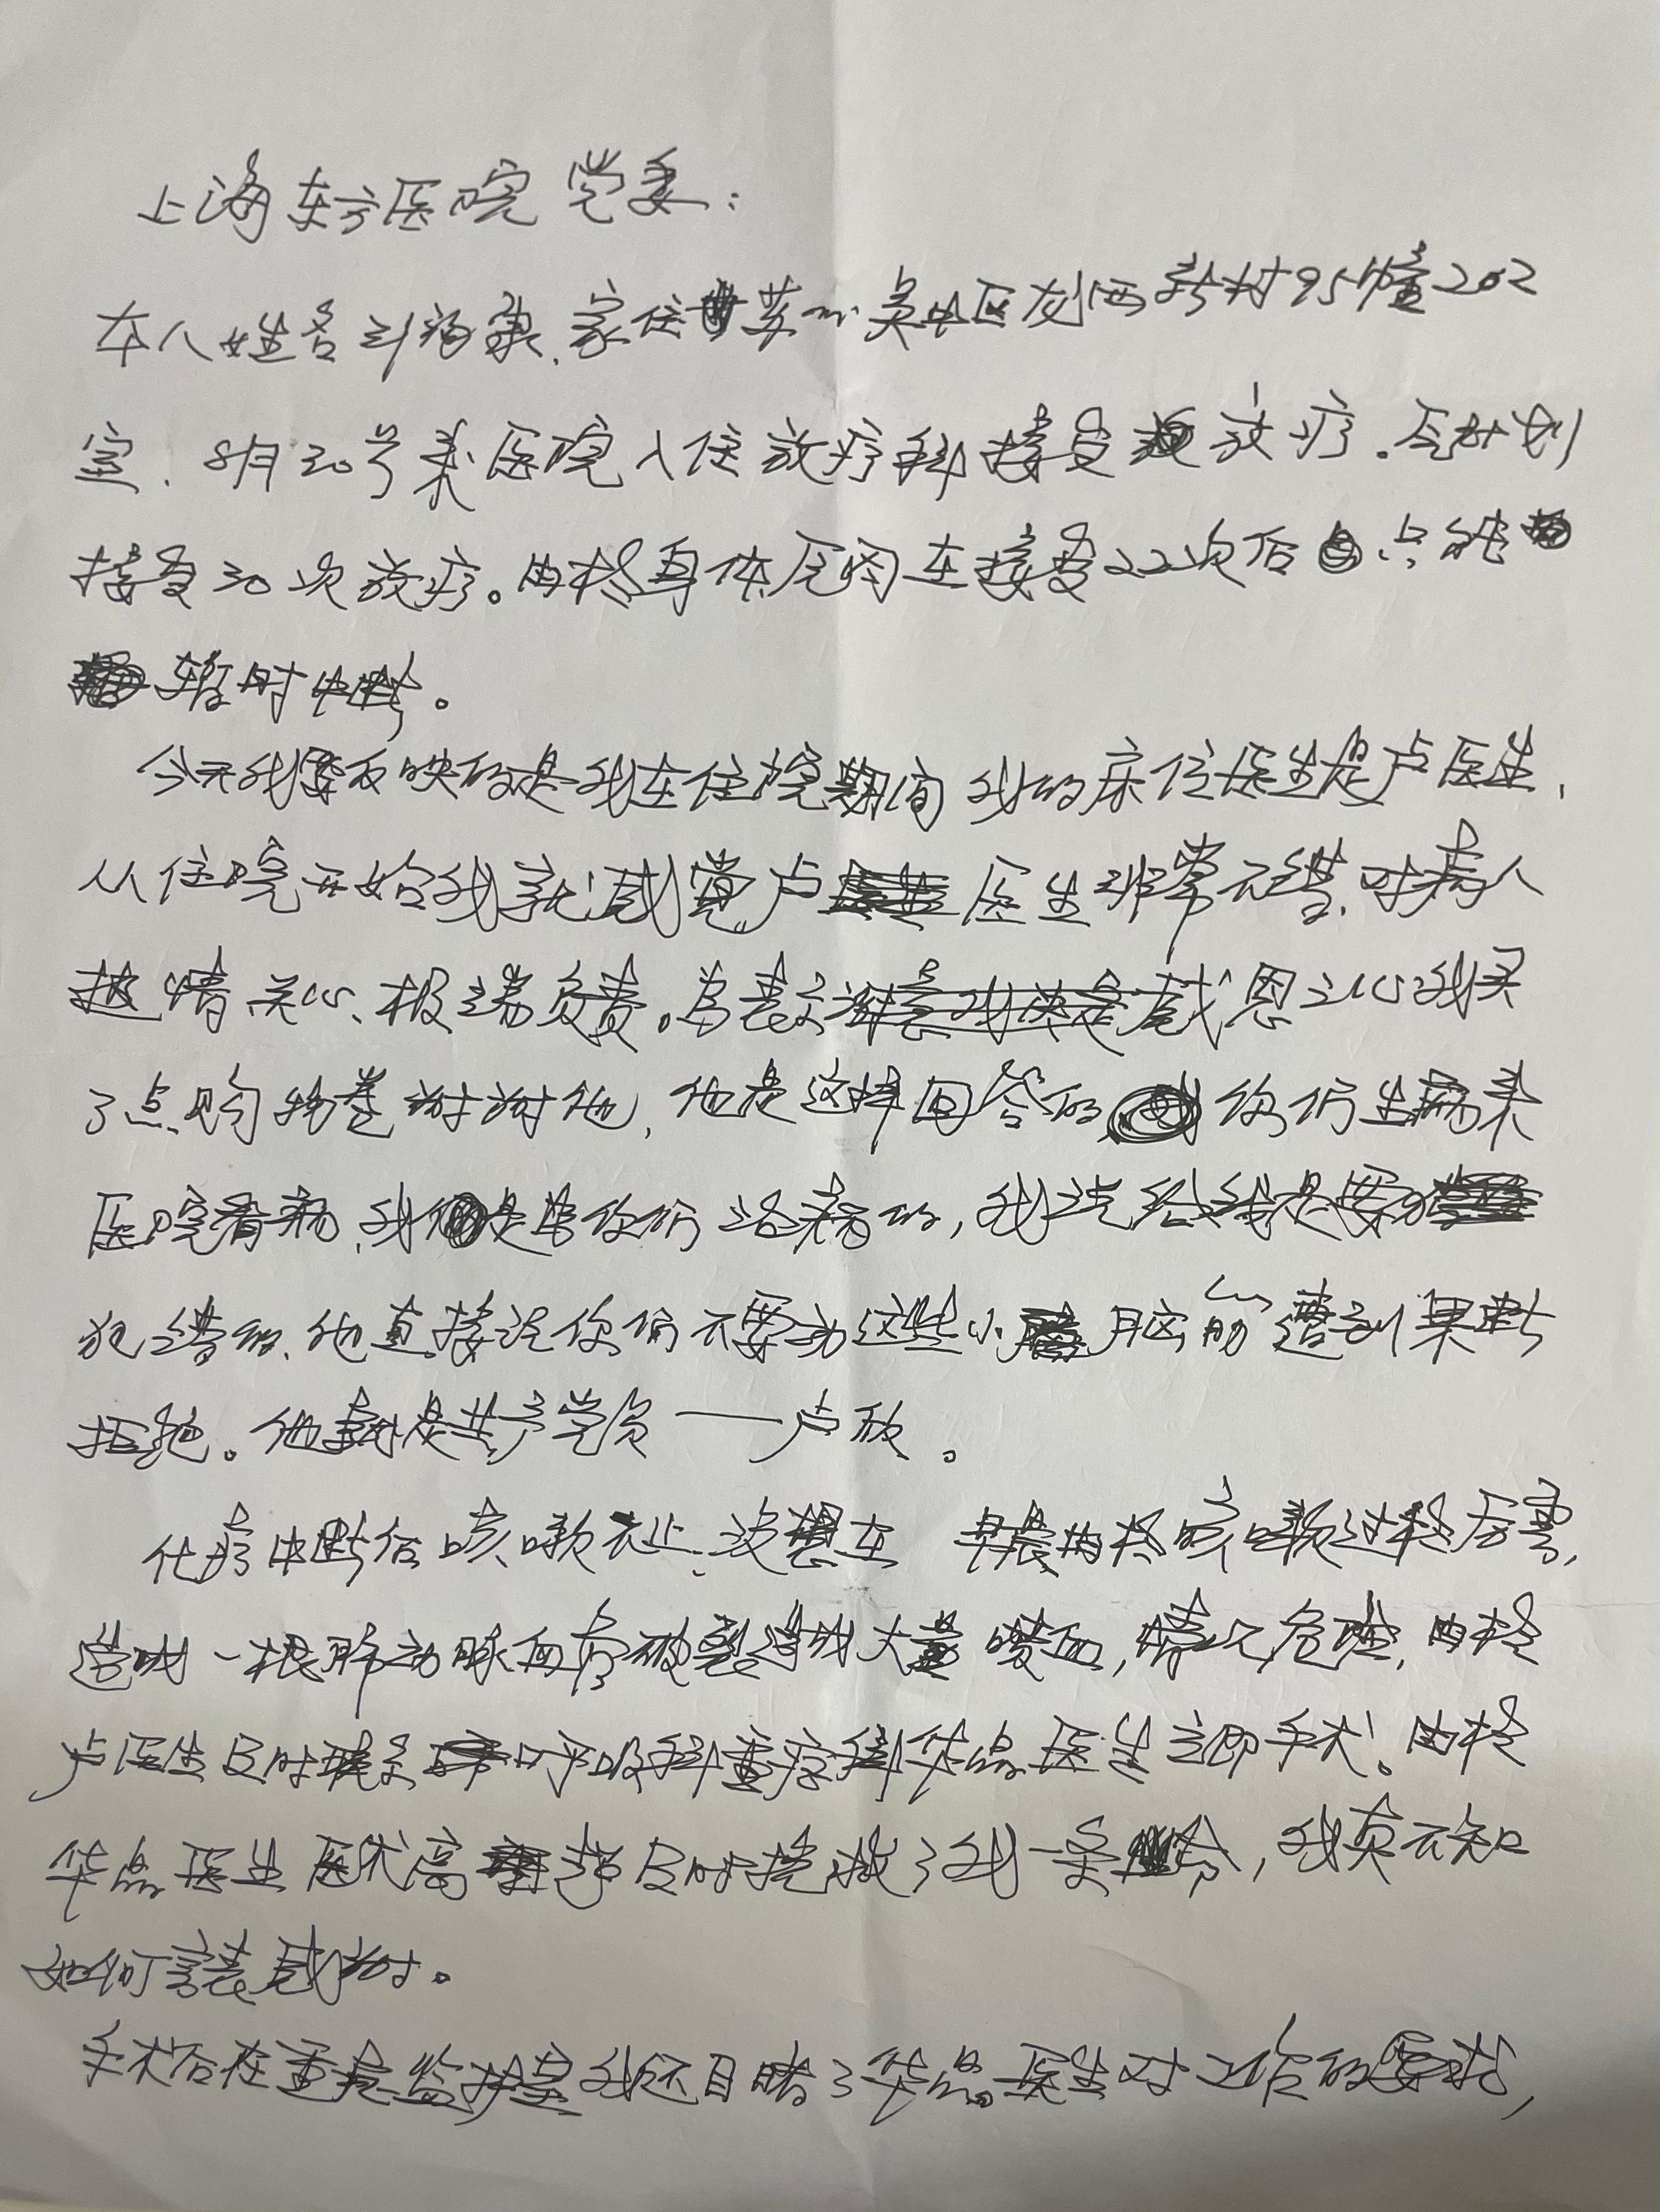 上海东方医院党委：
本人姓名刘福康，家住苏州吴中区龙西新村95幢202
室，8月20号来医院入住放疗科接受放疗。原计划
接受30次放疗。由于身体原因在接受22次后只能
暂时中断。
今天我要反映的是我在住院期间我的床位医生是卢医生，
从住院开始我就感觉卢医生非常不错，对病人
热情关心、极端负责。为表示感恩之心我买
了点购物卷谢谢他，他是这样回答的你们生病来
医院看病，我们是为你们治病的，我说给钱是要
犯错的，他直接说你们不要动这些小脑筋遭到果断
拒绝。他就是共产党员——卢放。
化疗中断后咳嗽不止，没想在早晨由于咳嗽过于厉害，
造成一根肺动脉血管破裂造成大量喷血，情况危险，由于
卢医生及时联系呼吸科重症科华晶医生立即手术。由于
华晶医生医术高超及时挽救了我一条命，我真不知
如何言表感谢。
手术后在重症监护室我还目睹了华晶医生对工作的要求，